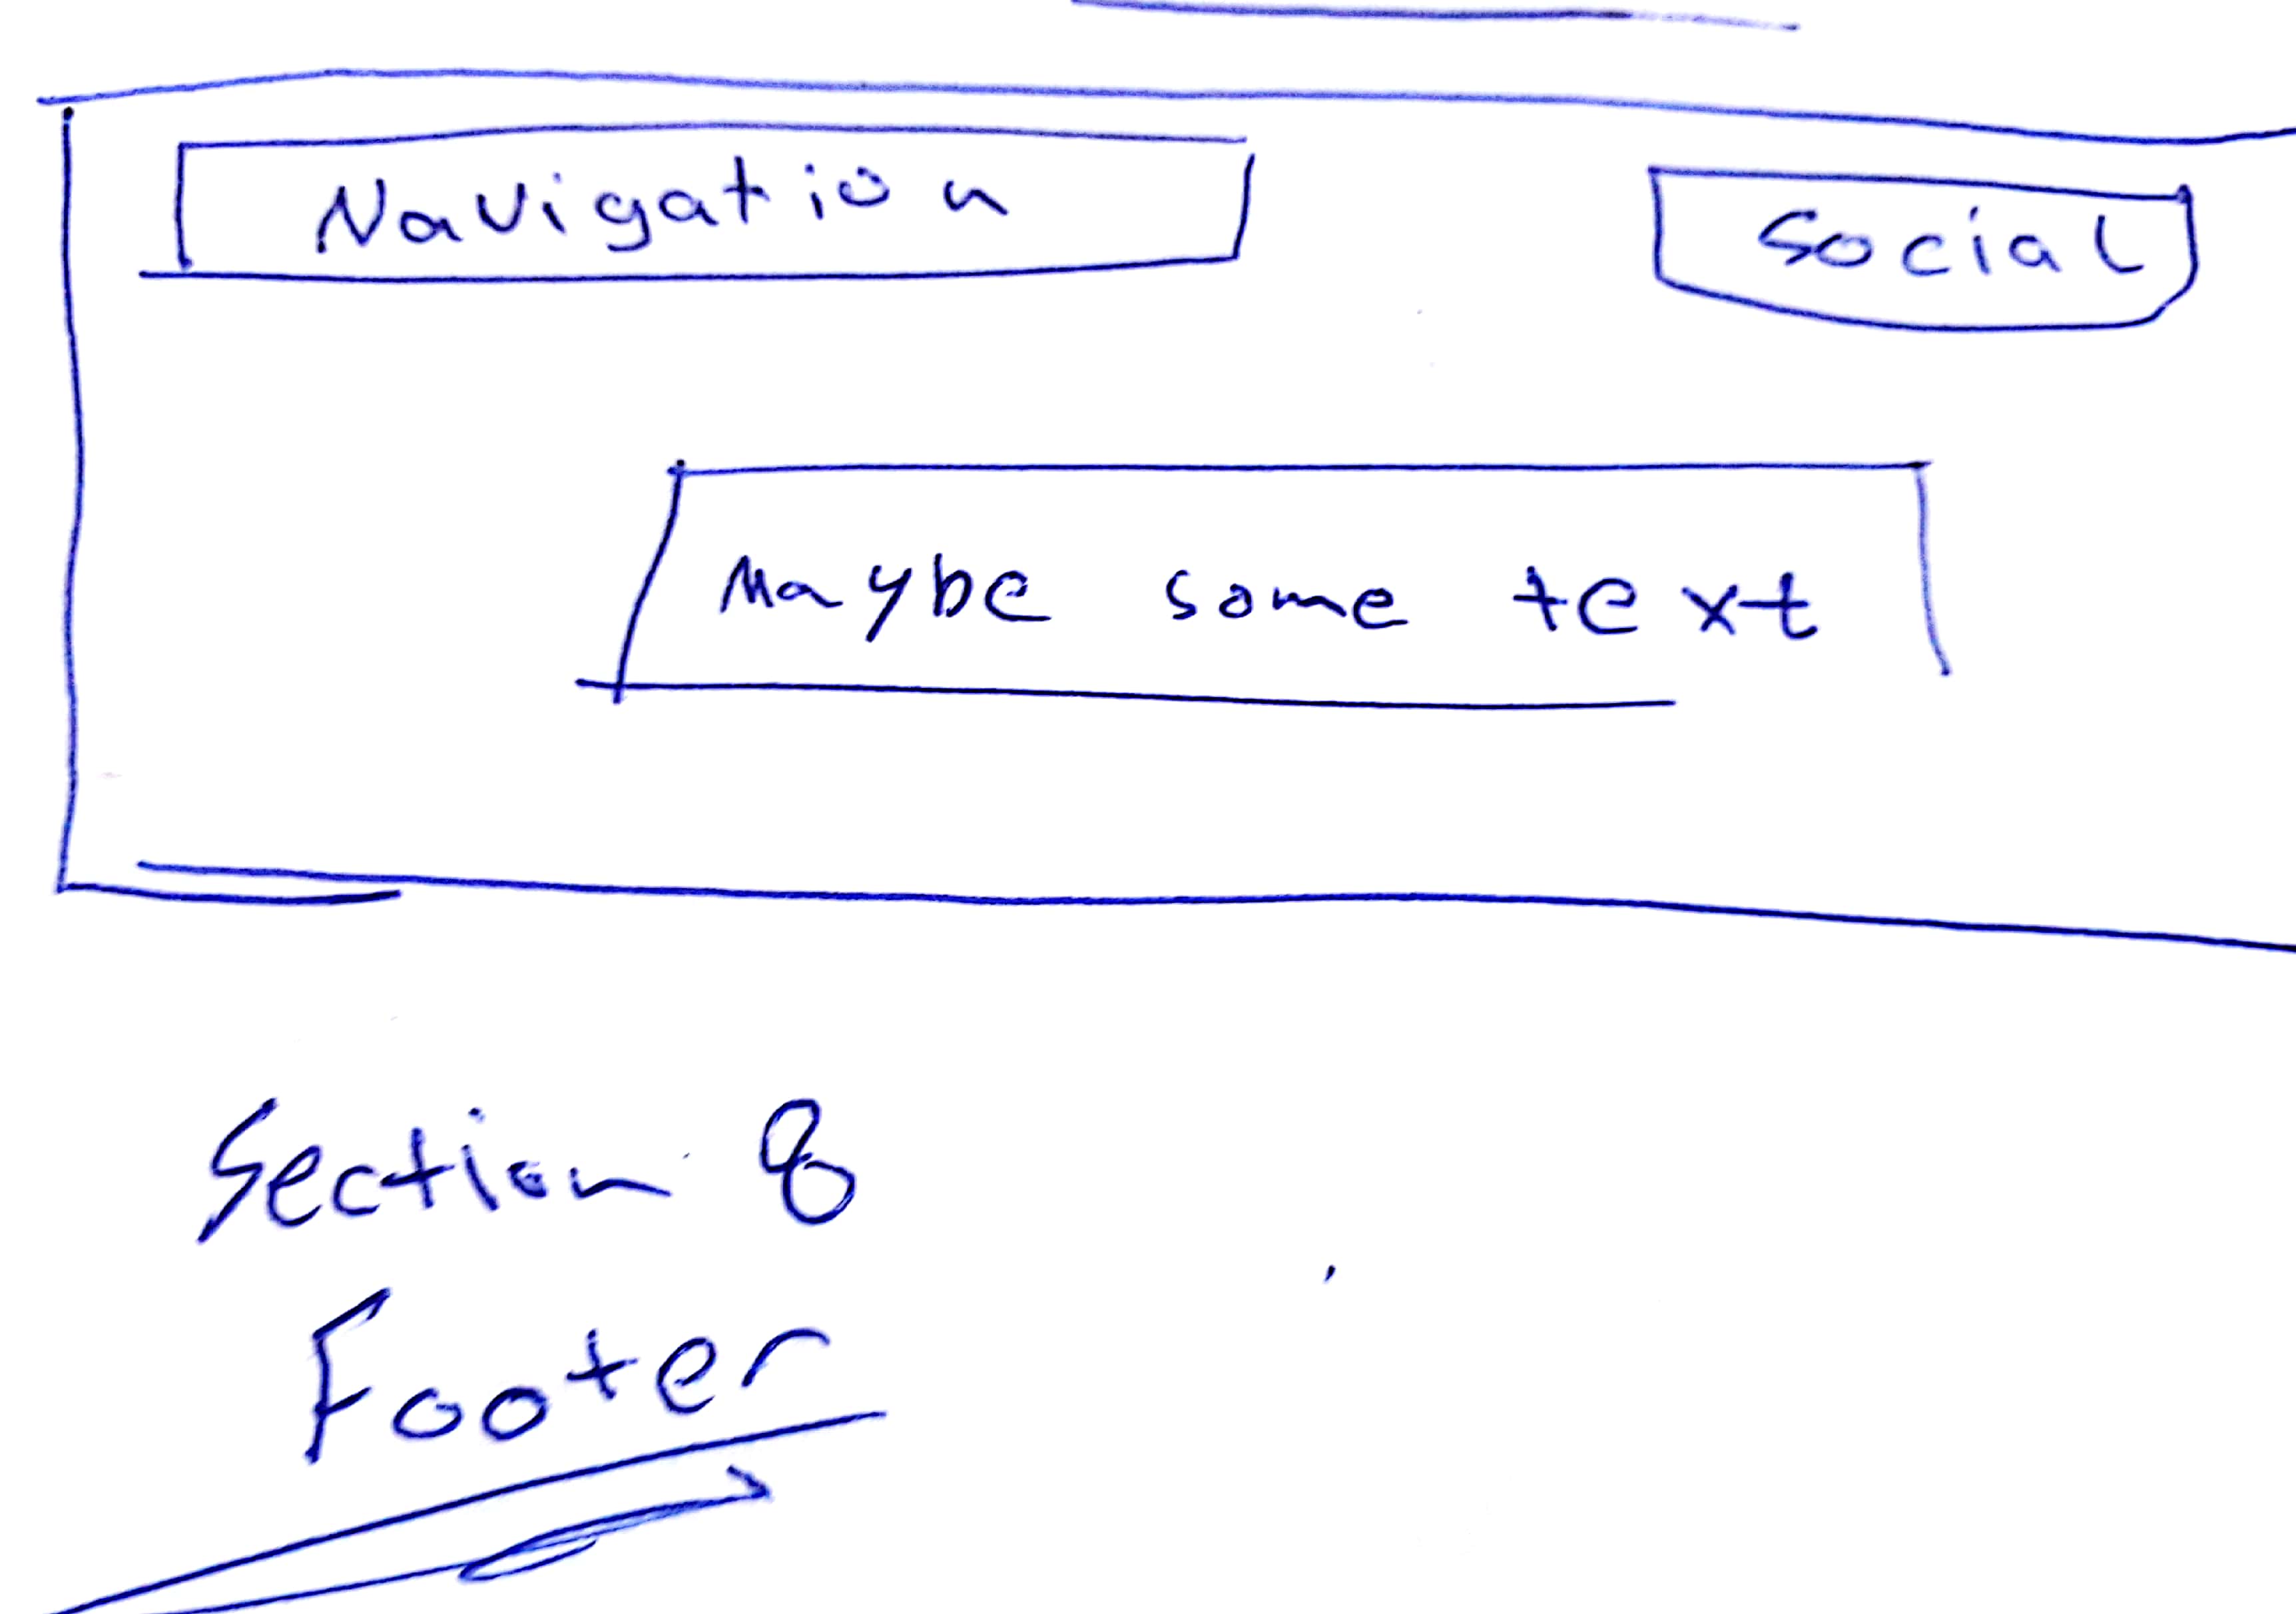 Navigation
Social
Maybe some text
Section 8
Footer